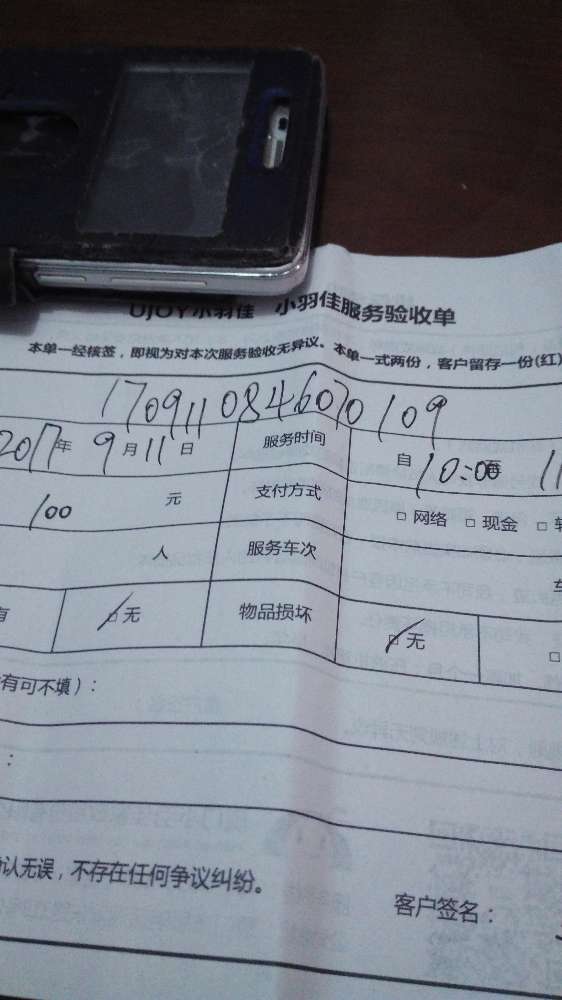 UJOY小羽佳 小羽佳服务验收单
本单一经核签，即视为对本次服务验收无异议。本单一式两份，客户留存一份(红)
1709110846070109
2017年 9月11日 服务时间 自 10:00 11
100 元 支付方式 □ 网络 □ 现金 □
人 服务车次
有 □无 物品损坏 □无 □
有可不填）：
：
认无误，不存在任何争议纠纷。
客户签名：